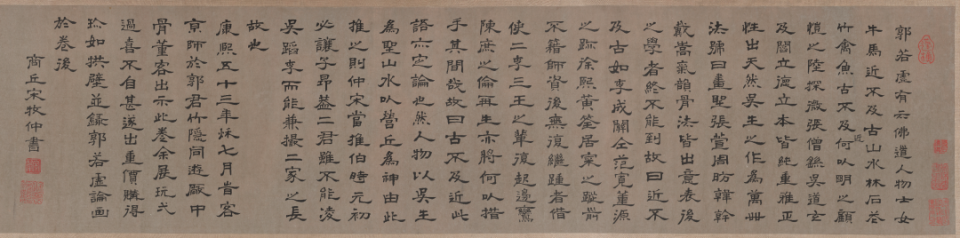 郭若虛有云佛道人物士女
牛馬近不及古山水林石花
竹禽魚古不及近何以明之顧
愷之陸探微張僧繇吳道玄
及閻立德立本皆純重雅正
性出天然吳生之作為萬世
法號曰畫聖張萱周昉韓幹
戴嵩氣韻骨法皆出意表後
之學者終不能到故曰近不
及古如李成關仝范寬董源
之跡徐熙黃筌居寀之蹤前
不藉師資後無復繼踵者借
使二李三王之輩復起邊鸞
陳庶之倫再生亦將何以措
手其間哉故曰古不及近此
語亦定論也然人物以吳生
為聖山水以營丘為神由此
推之則仲宋當推伯時元初
必讓子昂蓋二君雖不能淩
吳蹈李而能兼撮二家之長
故也
康熙五十三年秌七月昔客
京師於郭君竹隱同遊中
骨董客出示此卷余展玩之
過喜不自甚遂出重價購得
珍如拱璧並錄郭若虛論畫
於卷後
商丘宋牧仲書